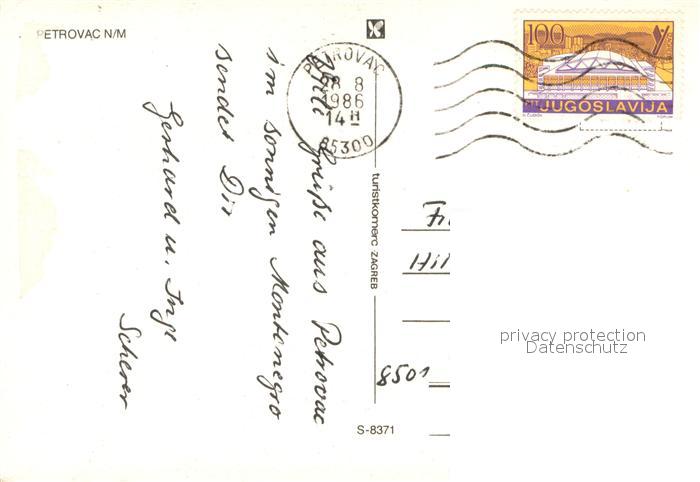 PETROVAC N/M
Viele Grüße aus Petrovac
im sonnigen Montenegro
sendet Dir
Gerhard u. Inge
Scherer
PETROVAC
8 8
1986
14 H
85300
turistkomerc ZAGREB
S-8371
100
JUGOSLAVIJA
8501
privacy protection
Datenschutz